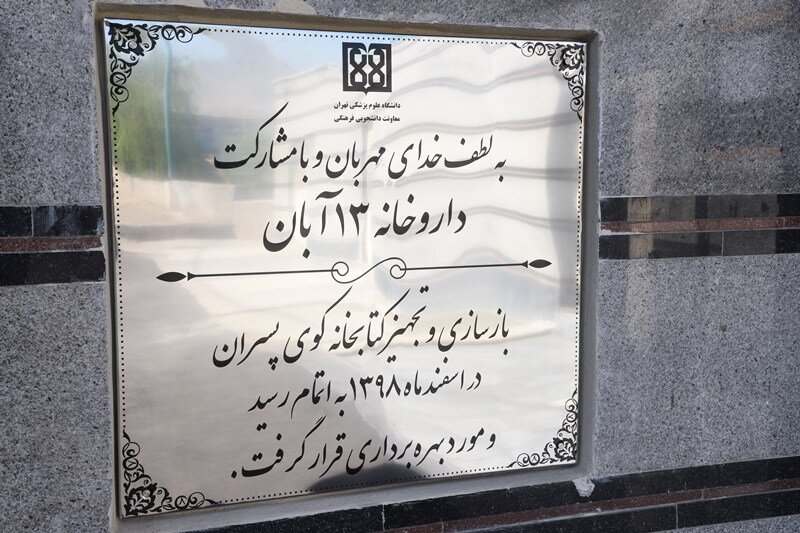 دانشگاه علوم پزشکی تهران
معاونت دانشجویی فرهنگی
به لطف خدای مهربان و با مشارکت
داروخانه ۱۳ آبان
بازسازی و تجهیز کتابخانه کوی پسران
در اسفند ماه ۱۳۹۸ به اتمام رسید
و مورد بهره برداری قرار گرفت.